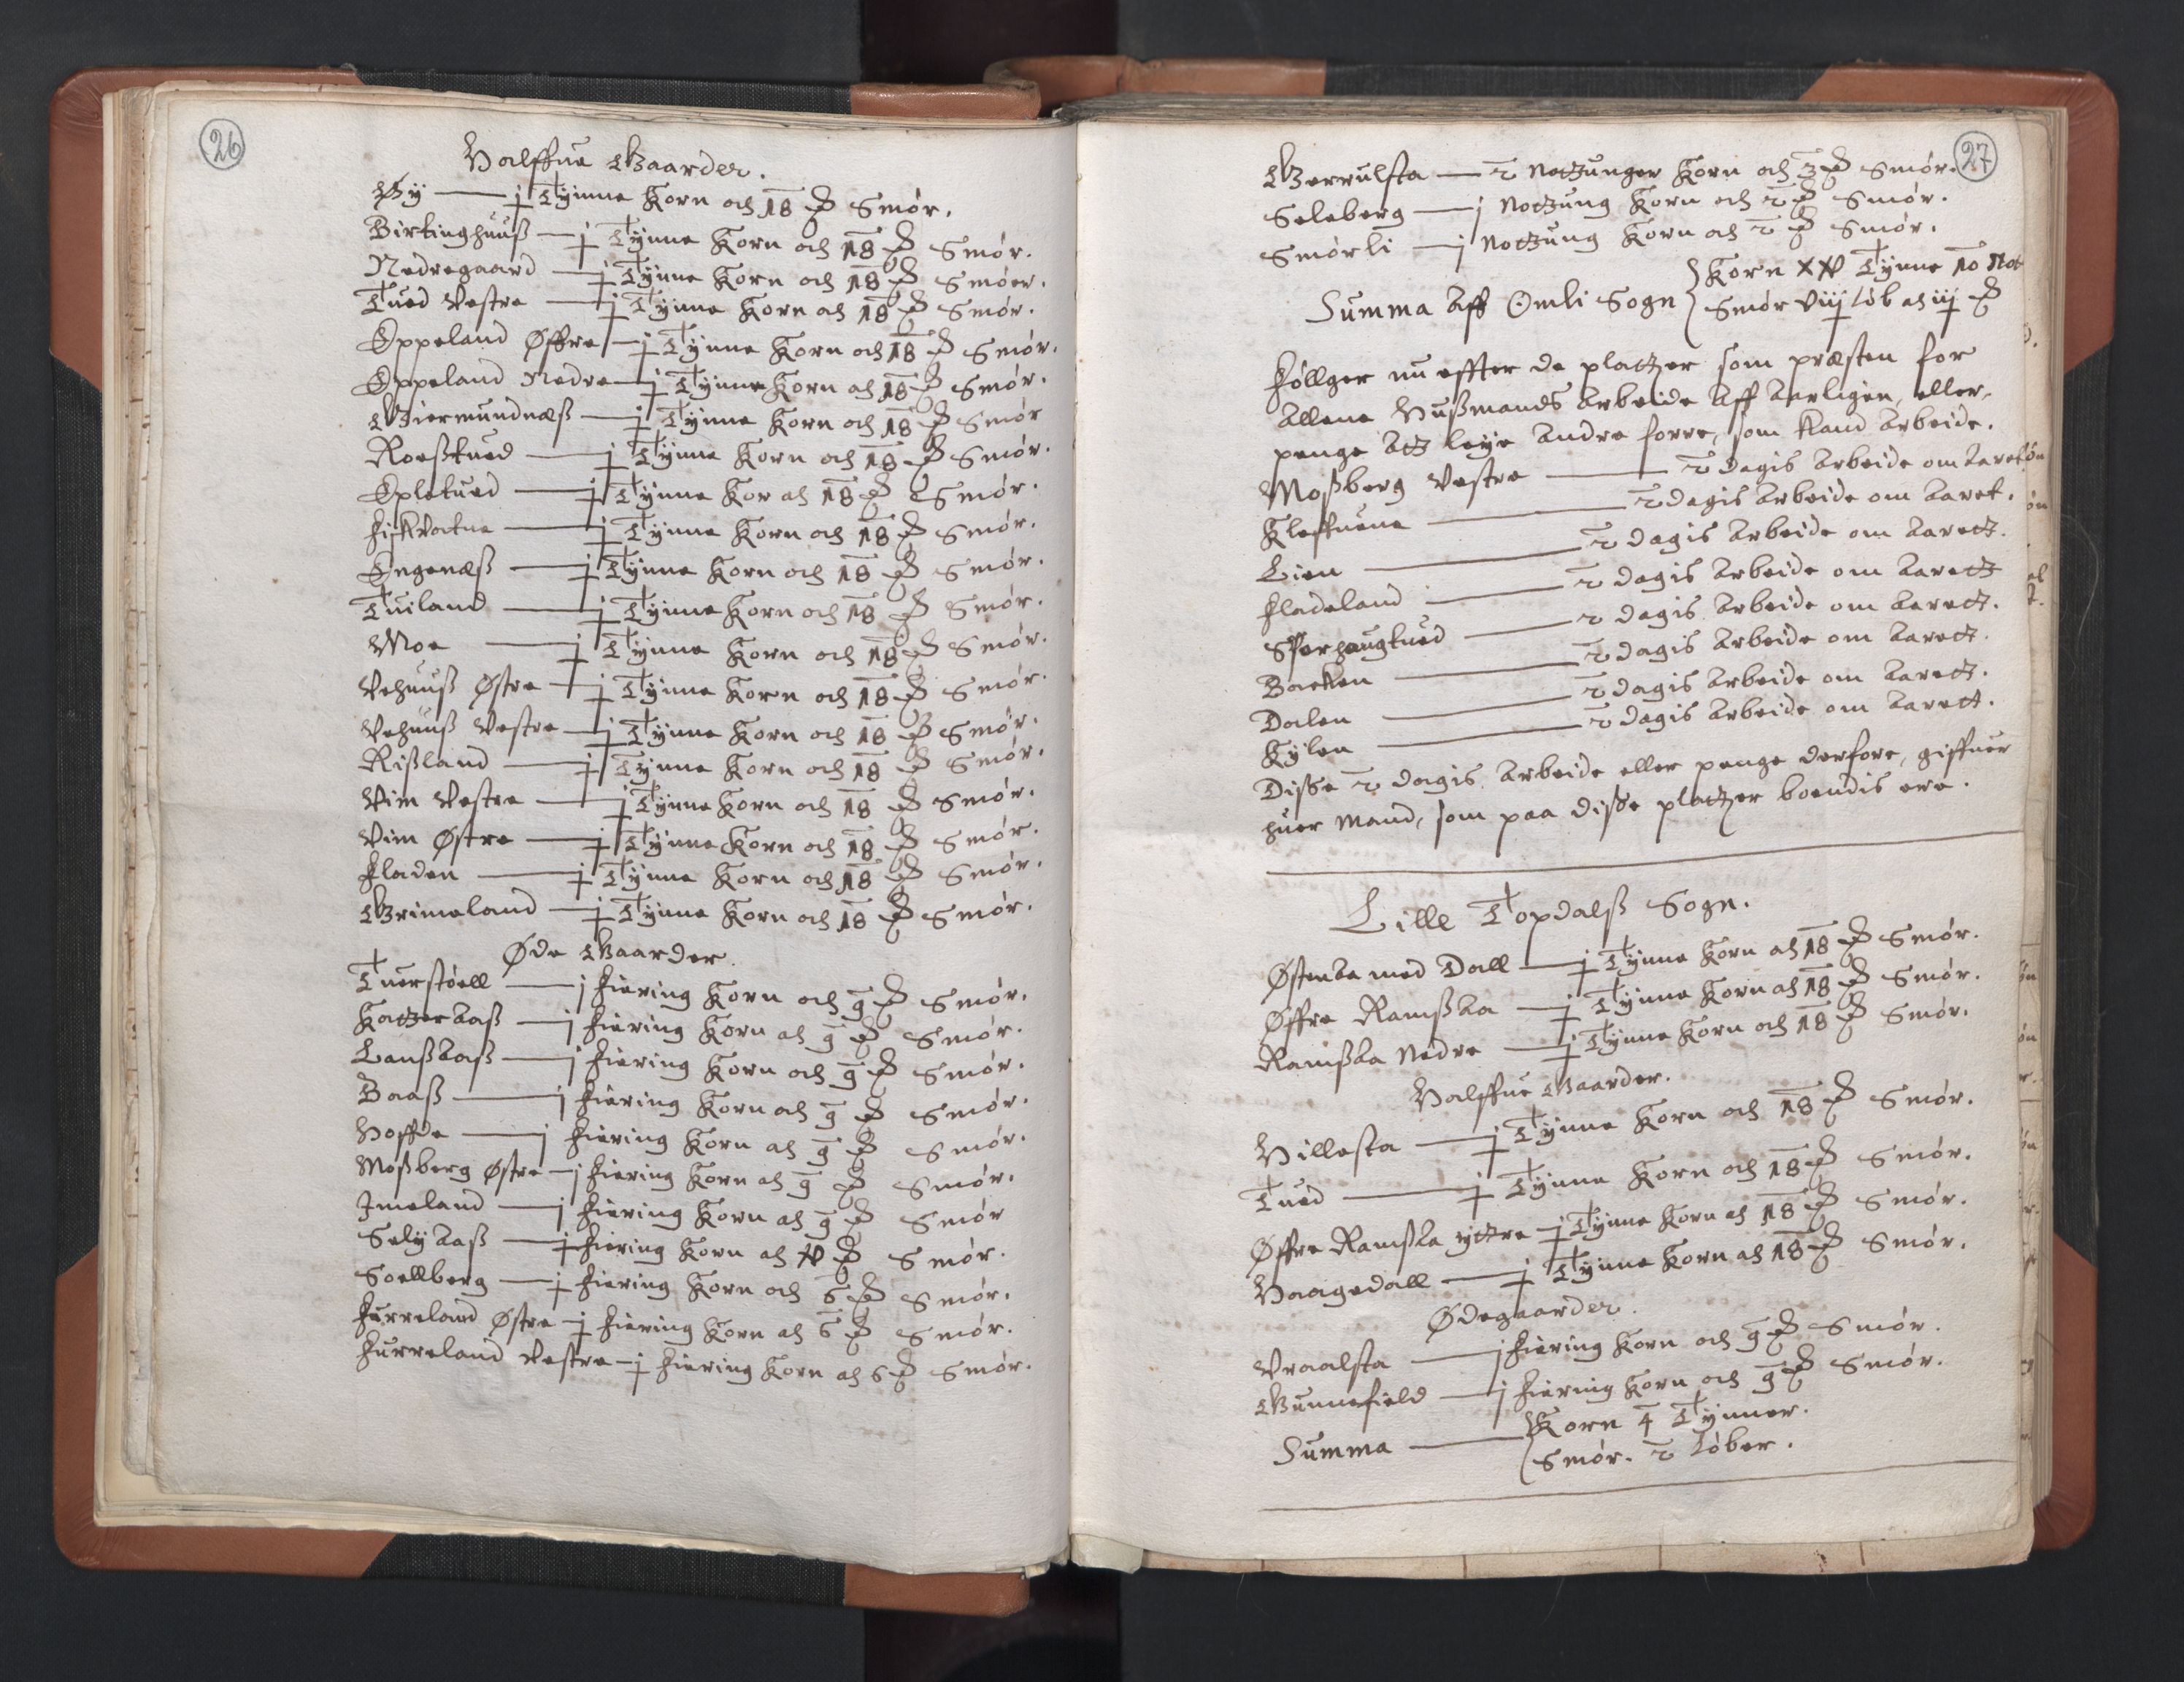 26
Halffue Gaarder.
By — j Tynne Korn och 18 ℔ Smór.
Birtinghuuß — j Tynne Korn och 18 ℔ Smór.
Nedregaard — j Tynne Korn och 18 ℔ Smóer.
Tued Vestre — j Tynne Korn och 18 ℔ Smór.
Oppeland Øffre — j Tynne Korn och 18 ℔ Smór.
Oppeland Nedre — j Tynne Korn och 18 ℔ Smór.
Giermundneß — j Tynne Korn och 18 ℔ Smór
Roeßtued — j Tynne Korn och 18 ℔ Smór.
Opletued — j Tynne Kor och 18 ℔ Smór.
Fiskvatne — j Tynne Korn och 18 ℔ Smór.
Engeneß — j Tynne Korn och 18 ℔ Smór.
Tuiland — j Tynne Korn och 18 ℔ Smór.
Moe — j Tynne Korn och 18 ℔ Smór.
Vehuuß Østre — j Tynne Korn och 18 ℔ Smór.
Vehuuß Vestre — j Tynne Korn och 18 ℔ Smór.
Rißland — j Tynne Korn och 18 ℔ Smór.
Vim Vestre — j Tynne Korn och 18 ℔ Smór.
Vim Østre — j Tynne Korn och 18 ℔ Smór.
Fladen — j Tynne Korn och 18 ℔ Smór.
Grimeland — j Tynne Korn och 18 ℔ Smór.
Øde Gaarder.
Tuerstóell — j fiering Korn och 9 ℔ Smór.
Katzeraaß — j fiering Korn och 9 ℔ Smór.
Lanßaaß — j fiering Korn och 9 ℔ Smór.
Baaß — j fiering Korn och 9 ℔ Smór.
Hoffde — j fiering Korn och 9 ℔ Smór.
Moßberg Østre — j fiering Korn och 9 ℔ Smór.
Jmeland — j fiering Korn och 9 ℔ Smór
Selyaaß — j fiering Korn och ℔ Smór.
Soellberg — j fiering Korn och 6 ℔ Smór.
Furreland Østre — j fiering Korn och 6 ℔ Smór.
Furreland Vestre — j fiering Korn och 6 ℔ Smór.
27
Gerrulsta — 2 Notzunger Korn och 3 ℔ Smór.
Seleberg — j Notzung Korn och 2 ℔ Smór.
Smórli — j Notzung Korn och 2 ℔ Smór.
Korn Tynne 10 Not
Summa aff Omli Sogn Smór viij lób och iij ℔
Fóllger nu effter de platzer som præsten for
allene Hußmands arbeide aff aarligen, eller
penge att leye andre forre, som kand arbeide.
Moßberg Vestre — 2 dagis arbeide om aaret
Kleffuene — 2 dagis arbeide om aaret.
Lien — 2 dagis arbeide om aarett.
Fladeland — 2 dagis arbeide om aarett
Sperhaugtued — 2 dagis arbeide om aarett.
Backen — 2 dagis arbeide om aarett.
Dalen — 2 dagis arbeide om aarett.
Kylen — 2 dagis arbeide om aarett.
Disse 2 dagis arbeide eller penge derfore, giffuer
huer Mand, som paa disse platzer boendis ere.
Lille Topdalß Sogn.
Østenaa med Dall — j Tynne Korn och 18 ℔ Smór.
Øffre Ramßaa — j Tynne Korn och 18 ℔ Smór.
Ramßaa Nedre — j Tynne Korn och 18 ℔ Smór.
Halffue Gaarder.
Hillesta — j Tynne Korn och 18 ℔ Smór.
Tued — j Tynne Korn och 18 ℔ Smór.
Øffre Ramßaa yttre — j Tynne Korn och 18 ℔ Smór.
Haagedall — j Tynne Korn och 18 ℔ Smór.
Ødegaarder.
Vraalsta — j fiering Korn och 9 ℔ Smór.
Gunnefield — j fiering Korn och 9 ℔ Smór.
Korn 4 Tynner.
Summa — Smór. 2 lóber.